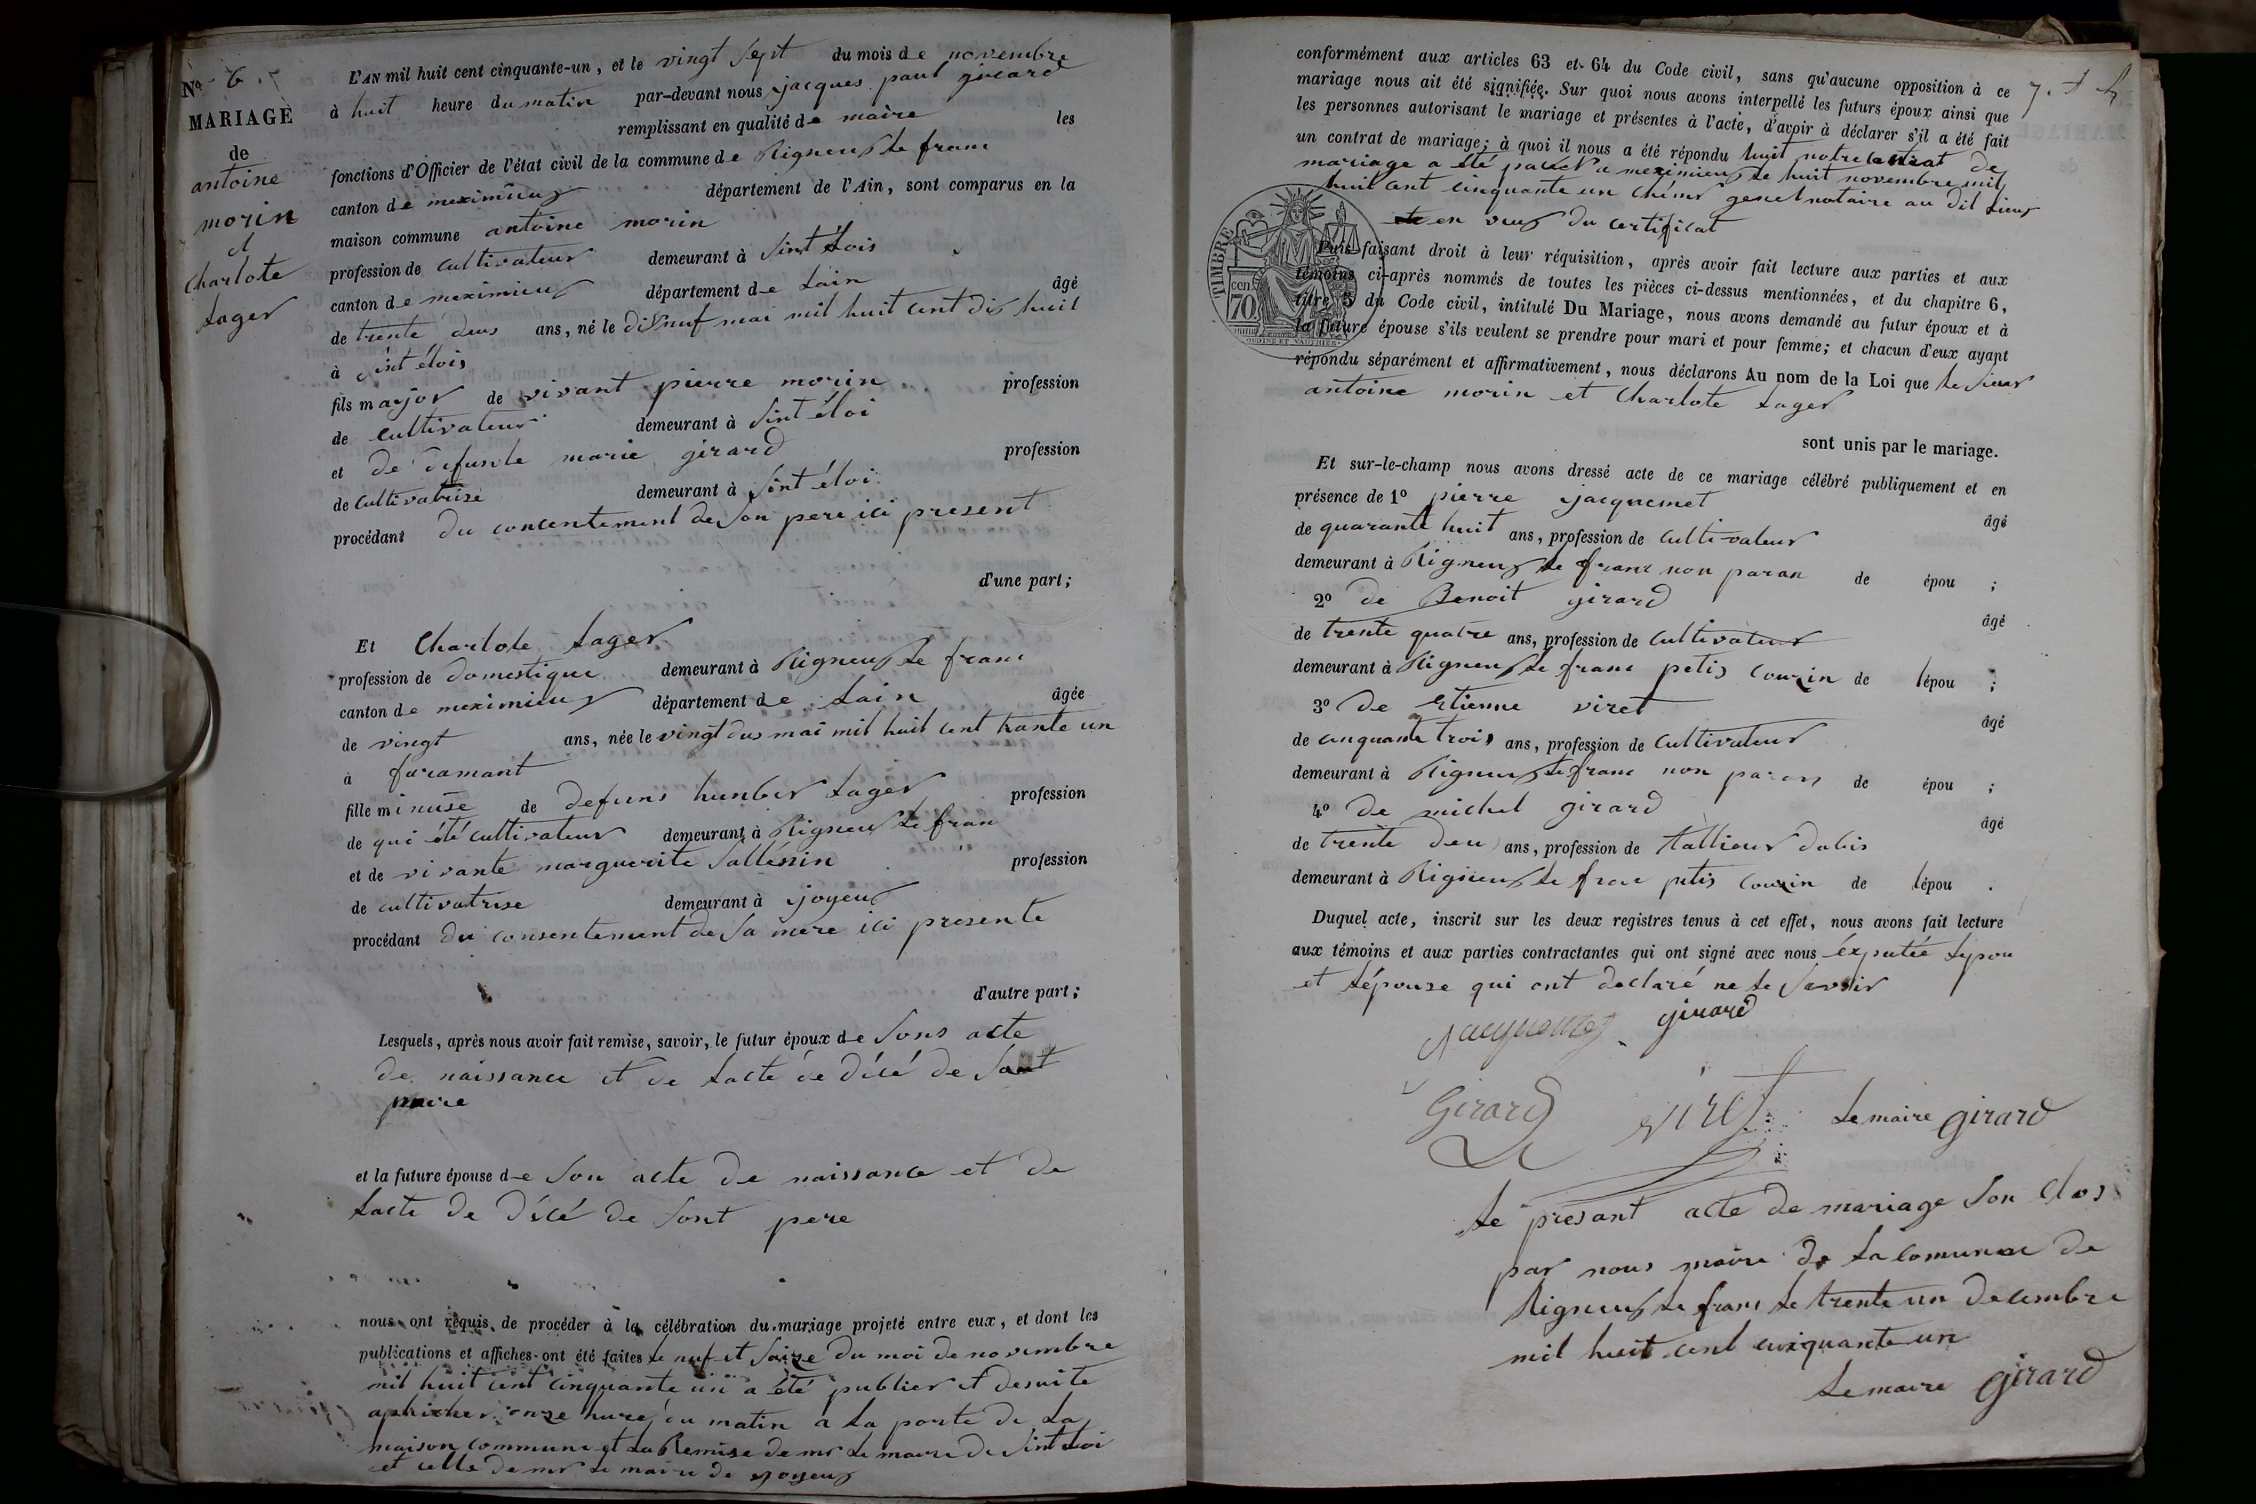 Nº 6.
MARIAGE
de
antoine
morin
et
Charlote
Lager
L'AN mil huit cent cinquante-un, et le vingt sept du mois de novembre
à huit heure du matin par-devant nous jacques paul girard
remplissant en qualité de maire les
fonctions d'Officier de l'état civil de la commune de Rigneux le franc
canton de meximieux département de l'Ain, sont comparus en la
maison commune antoine morin
profession de cultivateur demeurant à Sint Lois
canton de meximieux département de Lain âgé
de trente deus ans, né le disneuf mai mil huit cent dis huit
à Sint élois
fils major de vivant pierre morin profession
de cultivateur demeurant à Sint éloi
et de defunte marie girard profession
de cultivatrise demeurant à Sint éloi
procédant du concentement de Son pere ici present
d'une part;
Et Charlote Lager
profession de domestique demeurant à Rigneux le franc
canton de meximieux département de Lain âgée
de vingt ans, née le vingt dus mai mil huit cent trante un
à faramant
fille minuse de defuns hunber Lager profession
de qui été cultivateur demeurant à Rigneux le fran
et de vivante marguerite Sallénin profession
de cultivatrise demeurant à joyeux
procédant du consentement de Sa mere ici presente
d'autre part;
Lesquels, après nous avoir fait remise, savoir, le futur époux de Sons acte
de naissance et de Lacte de décé de Sant
maire
et la future épouse de Son acte de naissance et de
Lacte de décé de Sont pere
nous ont requis de procéder à la célébration du mariage projeté entre eux, et dont les
publications et affiches ont été faites le nuf et Saize du moi de novembre
mil huit cent cinquante un a été publier et desuite
aphicher onze hure du matin a La porte de La
maison commune et La Remise de mr Le maire de Sint Loi
et celle de mr Le maire de joyeux
7. f h
conformément aux articles 63 et 64 du Code civil, sans qu'aucune opposition à ce
mariage nous ait été signifiée. Sur quoi nous avons interpellé les futurs époux ainsi que
les personnes autorisant le mariage et présentes à l'acte, d'avoir à déclarer s'il a été fait
un contrat de mariage; à quoi il nous a été répondu huit notre contrat de
mariage a été passer a meximieux le huit novembre mil
huit cent cinquante un genet notaire au dit Lieux
en veus du certificat
TIMBRE
cen
70
Puis faisant droit à leur réquisition, après avoir fait lecture aux parties et aux
témoins ci-après nommés de toutes les pièces ci-dessus mentionnées, et du chapitre 6,
titre 5 du Code civil, intitulé Du Mariage, nous avons demandé au futur époux et à
la future épouse s'ils veulent se prendre pour mari et pour femme; et chacun d'eux ayant
répondu séparément et affirmativement, nous déclarons Au nom de la Loi que Le Sieur
antoine morin et Charlote Lager
sont unis par le mariage.
Et sur-le-champ nous avons dressé acte de ce mariage célébré publiquement et en
présence de 1º pierre jacquemet âgé
de quarante huit ans, profession de cultivateur
demeurant à Rigneux le franc non paran de épou ;
2º de Benoit girard âgé
de trente quatre ans, profession de cultivateur
demeurant à Rigneux le franc petis couzin de lépou ;
3º de Etienne viret âgé
de cinquante trois ans, profession de cultivateur
demeurant à Rigneux le franc non parans de épou ;
4º de michel girard âgé
de trente deu ans, profession de tallieur dabis
demeurant à Rigneux le franc petis couzin de lépou .
Duquel acte, inscrit sur les deux registres tenus à cet effet, nous avons fait lecture
aux témoins et aux parties contractantes qui ont signé avec nous éxputée Lepou
et Lépouze qui ont declaré ne le Savoir
Jacquemet girard
Girard viret Le maire girard
Le présant acte de mariage Son clos
par nous maire de La comunne de
Rigneux le franc le trente un decembre
mil huit cent cinquante un
Le maire girard